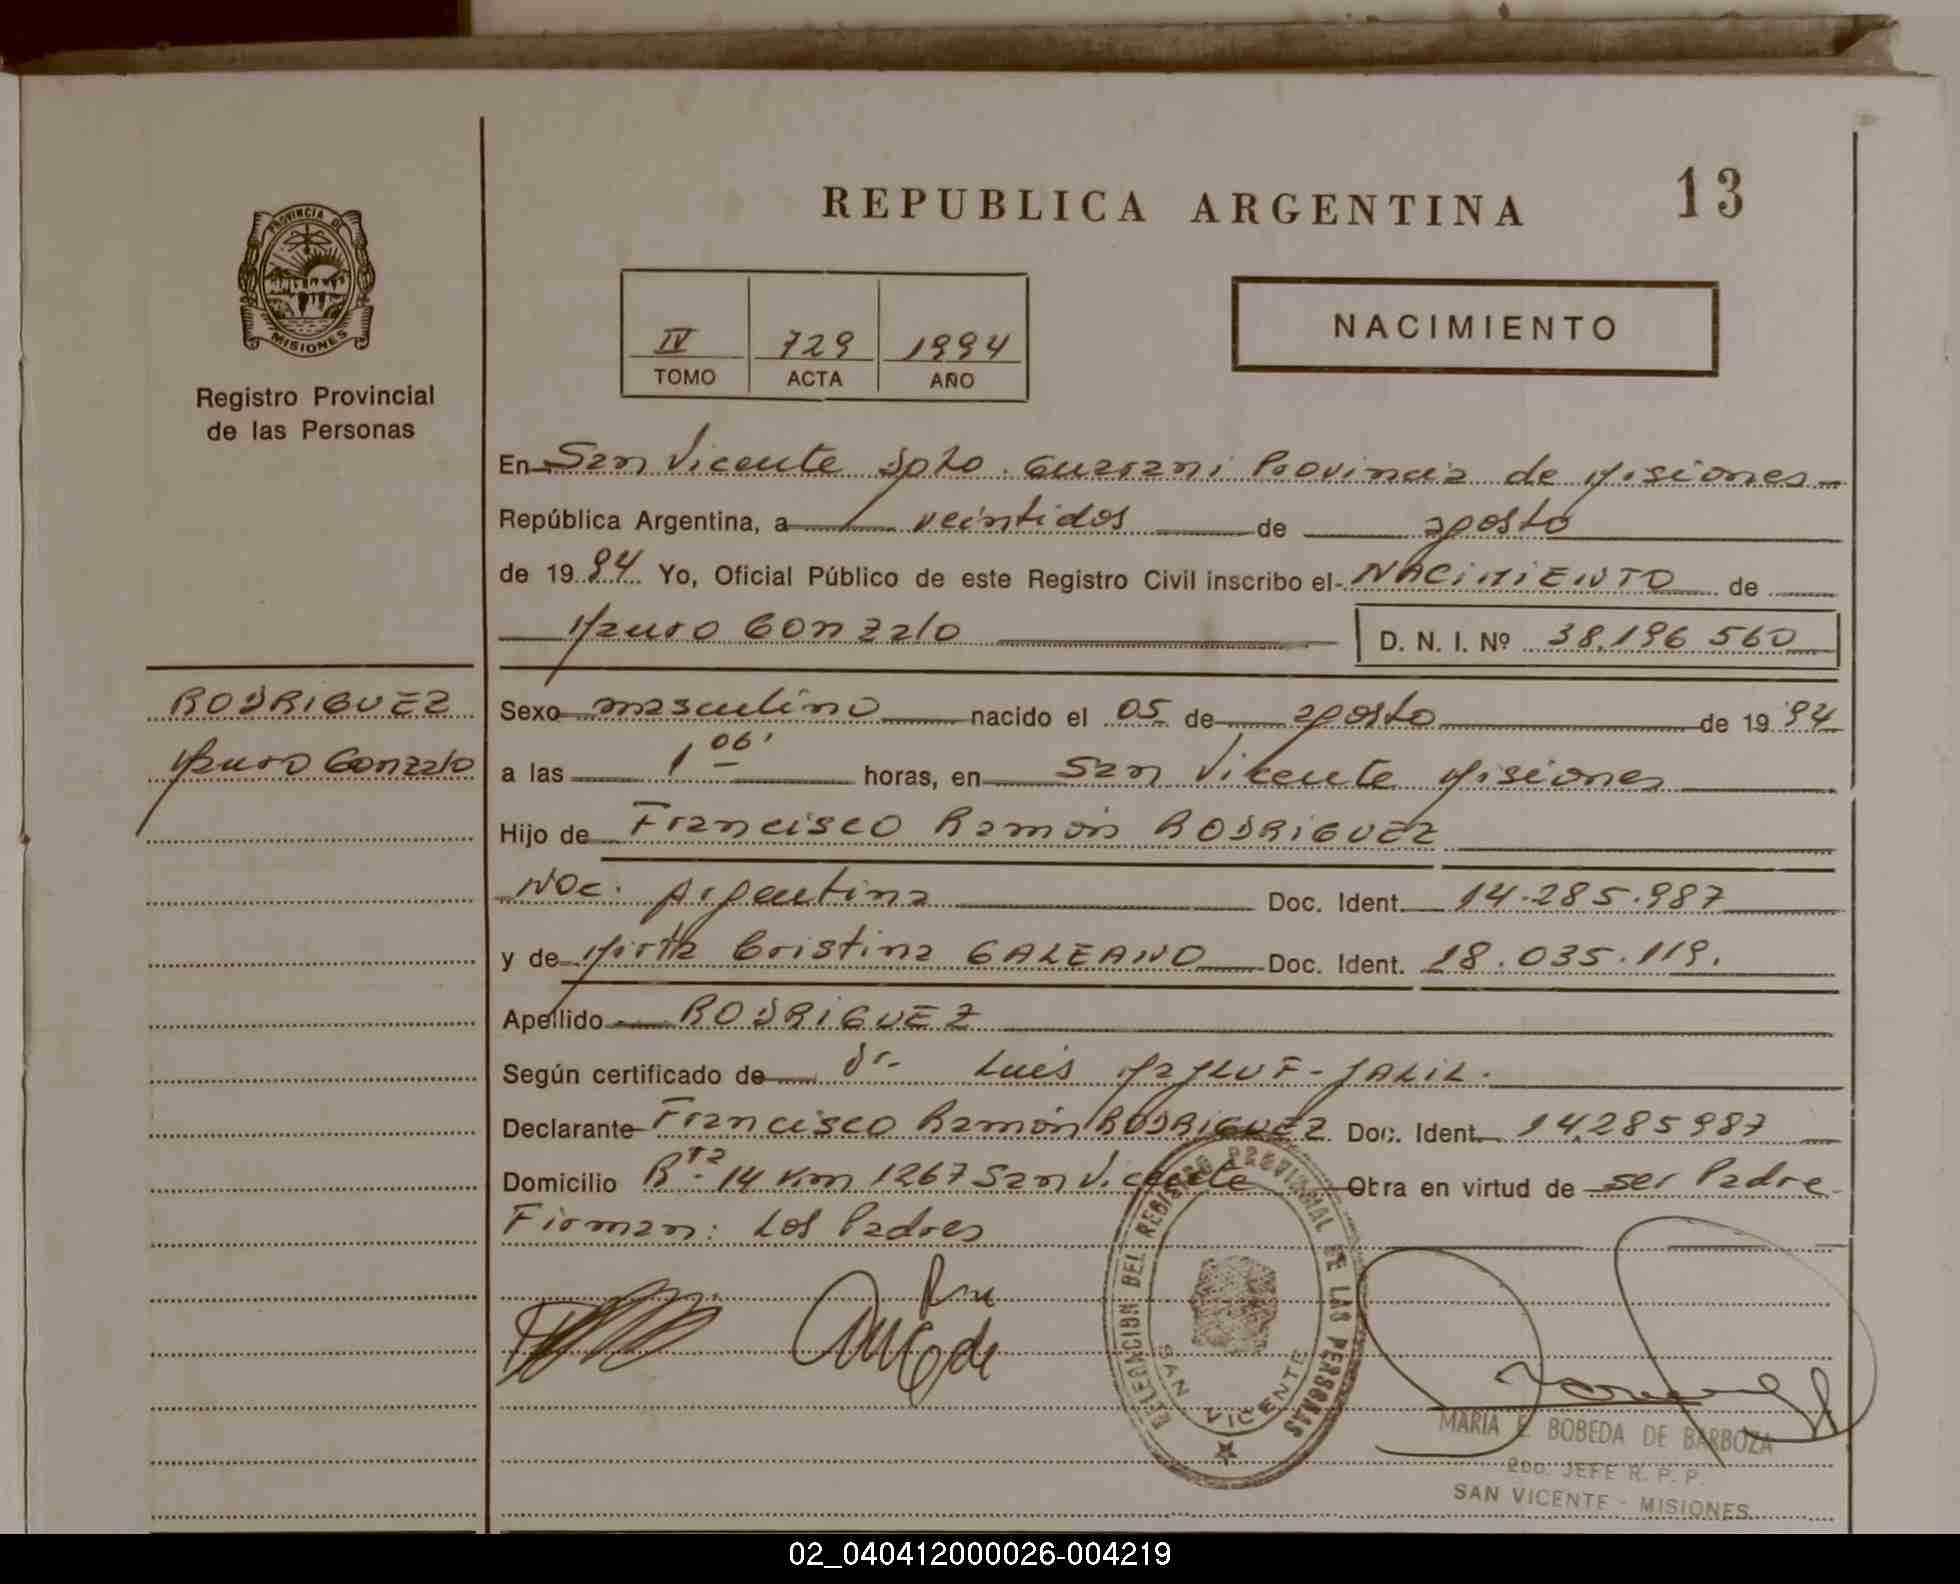 REPUBLICA ARGENTINA
13
PROVINCIA DE
MISIONES
Registro Provincial
de las Personas
IV 729 1994
TOMO ACTA AÑO
NACIMIENTO
En San Vicente Dpto. Guarani Provincia de Misiones
República Argentina, a veintidos de agosto
de 1994 Yo, Oficial Público de este Registro Civil inscribo el NACIMIENTO de
Mauro Gonzalo D. N. I. Nº 38.196 560
RODRIGUEZ
Mauro Gonzalo
Sexo masculino nacido el 05 de agosto de 1994
a las 1 06' horas, en San Vicente Misiones
Hijo de Francisco Ramón RODRIGUEZ
Nac. Argentina Doc. Ident. 14.285.987
y de Mirta Cristina GALEANO Doc. Ident. 18.035.119.
Apellido RODRIGUEZ
Según certificado de Dr. Luis JALIL.
Declarante Francisco Ramón RODRIGUEZ Doc. Ident. 14.285987
Domicilio Rta. 14 Km 1267 San Vicente Obra en virtud de ser Padre
Firman: Los Padres
DELEGACION DEL REGISTRO PROVINCIAL DE LAS PERSONAS
SAN VICENTE
MARIA E BOBEDA DE BARBOZA
2do. JEFE R. P. P.
SAN VICENTE - MISIONES
02_040412000026-004219